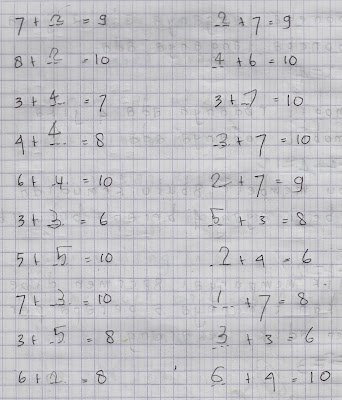 7 + 3 = 9 2 + 7 = 9
8 + 2 = 10 4 + 6 = 10
3 + 4 = 7 3 + 7 = 10
4 + 4 = 8 3 + 7 = 10
6 + 4 = 10 2 + 7 = 9
3 + 3 = 6 5 + 3 = 8
5 + 5 = 10 2 + 4 = 6
7 + 3 = 10 1 + 7 = 8
3 + 5 = 8 3 + 3 = 6
6 + 2 = 8 6 + 4 = 10